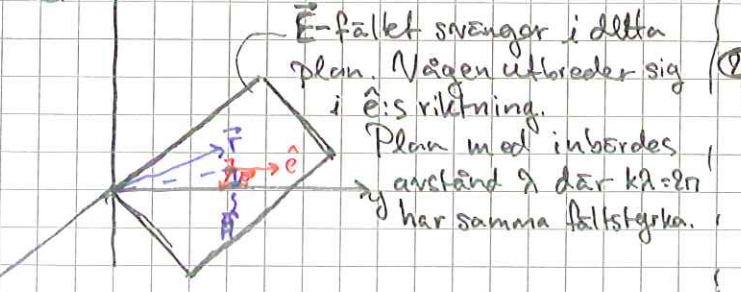 E⃗-fältet svänger i detta
plan. Vågen utbreder sig
i ê:s riktning.
Plan med inbördes
avstånd λ där kλ=2π
har samma fältstyrka.
r⃗
ê
y